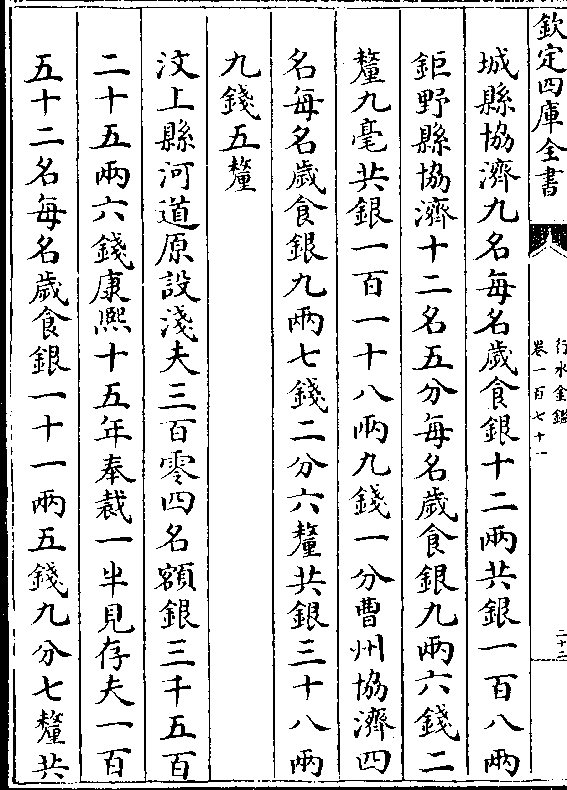 欽定四庫全書
行水金鑑
卷一百七十一
二十二
城縣協濟九名每名歲食銀十二兩共銀一百八兩
鉅野縣協濟十二名五分每名歲食銀九兩六錢二
釐九毫共銀一百一十八兩九錢一分曹州協濟四
名每名歲食銀九兩七錢二分六釐共銀三十八兩
九錢五釐
汶上縣河道原設淺夫三百零四名額銀三千五百
二十五兩六錢康熙十五年奉裁一半見存夫一百
五十二名每名歲食銀一十一兩五錢九分七釐共